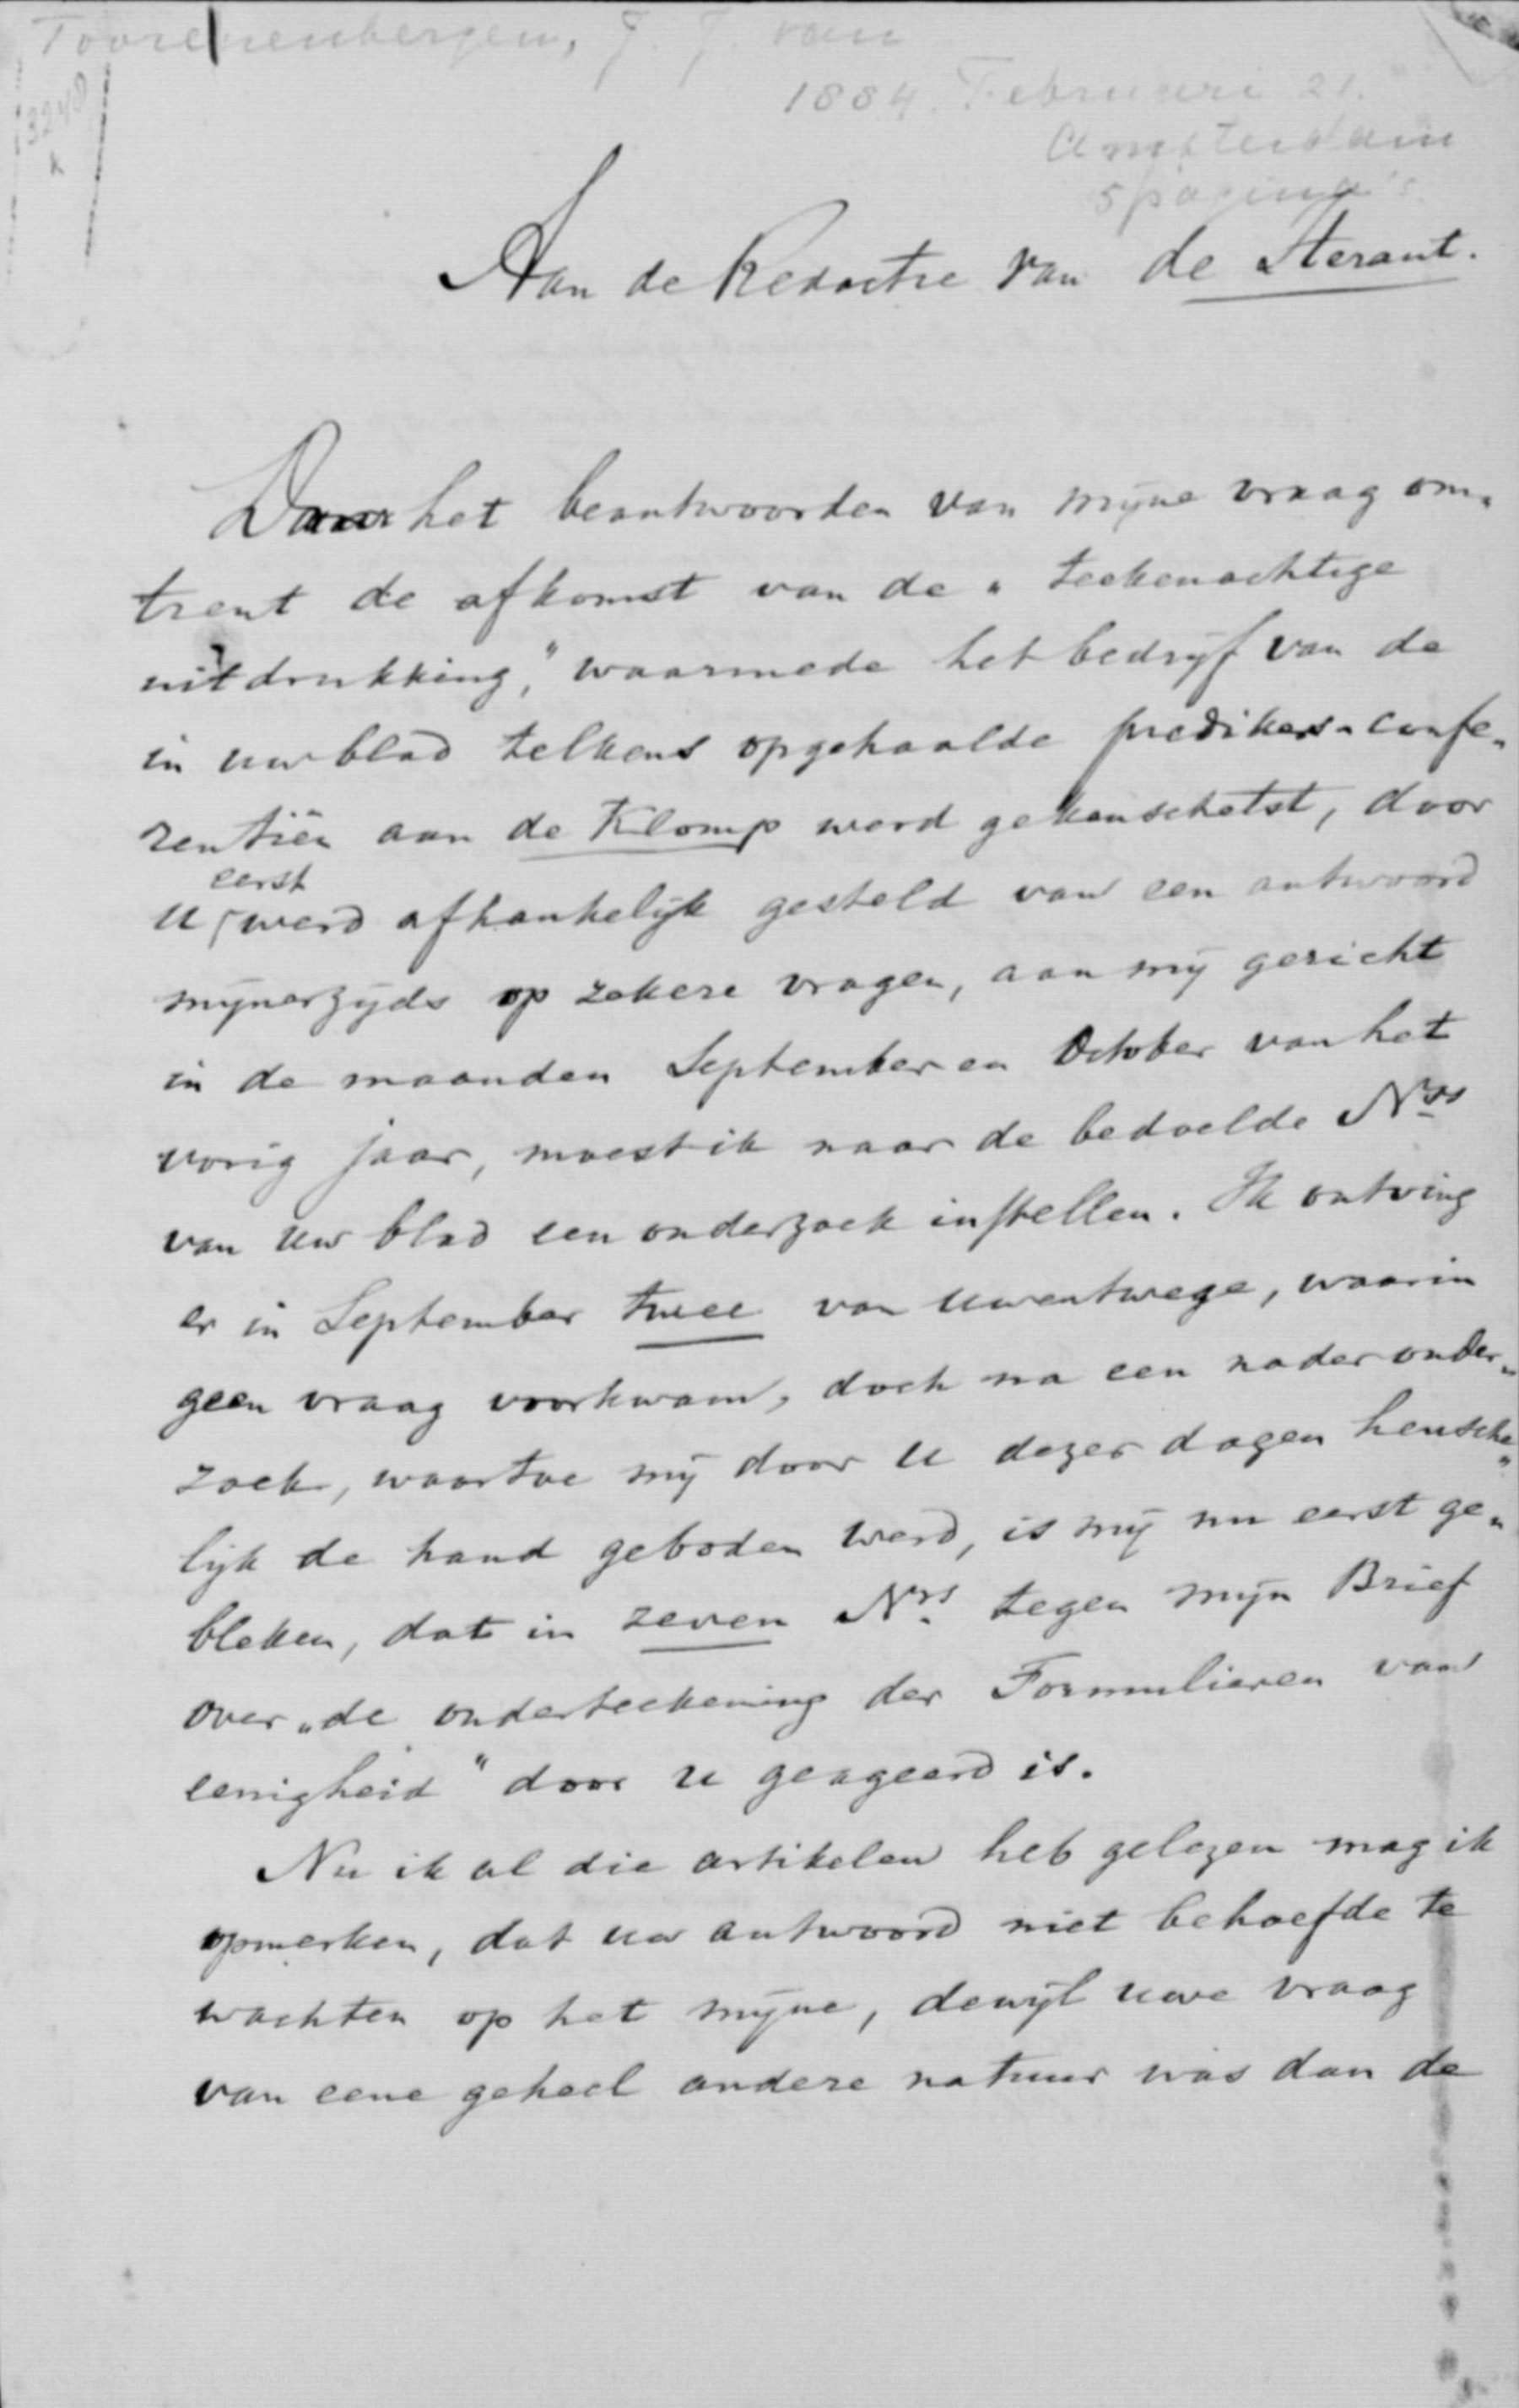 Toorenenbergen, J. J. van
1884. Februari 21.
Amsterdam
5 pagina's.
3248
Aan de Redactie van de Heraut.
Daar het beantwoorden van mijne vraag om„
trent de afkomst van de „teekenachtige
uitdrukking," waarmede het bedrijf van de
in uw blad telkens opgehaalde predikers-confe„
rentiën aan de Klomp werd gekenschetst, door
eerst
U werd afhankelijk gesteld van een antwoord
mijnerzijds op zekere vragen, aan mij gericht
in de maanden September en October van het
vorig jaar, moest ik naar de bedoelde Nrs
van uw blad een onderzoek instellen. Ik ontving
er in September twee van Uwentwege, waarin
geen vraag voorkwam, doch na een nader onder„
zoek, waartoe mij door U dezer dagen heusche„
lijk de hand geboden werd, is mij nu eerst ge„
bleken, dat in zeven Nrs. tegen mijn Brief
over „de onderteekening der Formulieren van
eenigheid" door U geageerd is.
Nu ik al die artikelen heb gelezen mag ik
opmerken, dat uw antwoord niet behoefde te
wachten op het mijne, dewijl uwe vraag
van eene geheel andere natuur was dan de